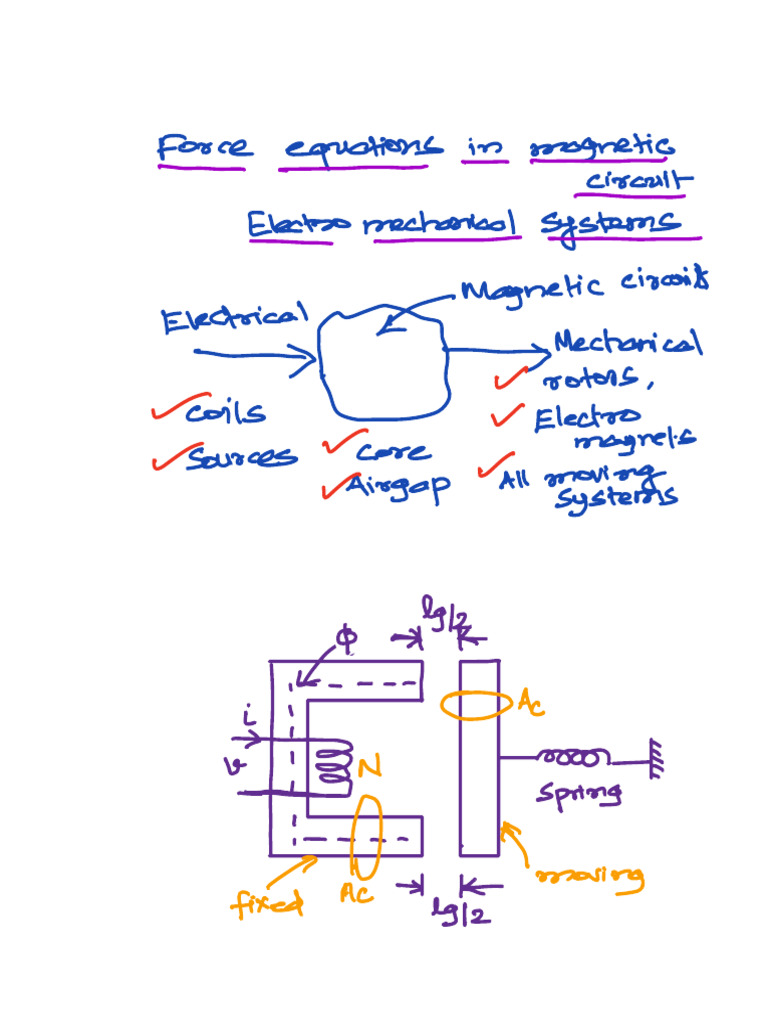 Force equations in magnetic
circuit
Electro mechanical systems
Electrical
Magnetic circuits
Mechanical
rotors,
Electro
magnets
All moving
systems
coils
sources
core
Airgap
lg/2
ϕ
Ac
i
v
N
spring
moving
fixed
Ac
lg/2